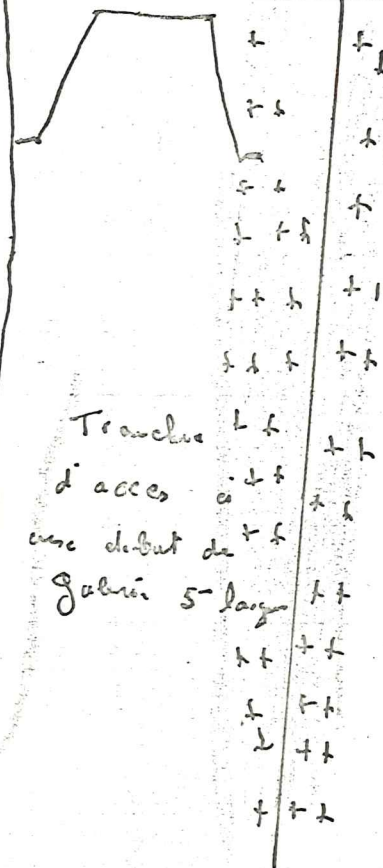 Tranchée
d'acces à
une debut de
Galerie 5m large